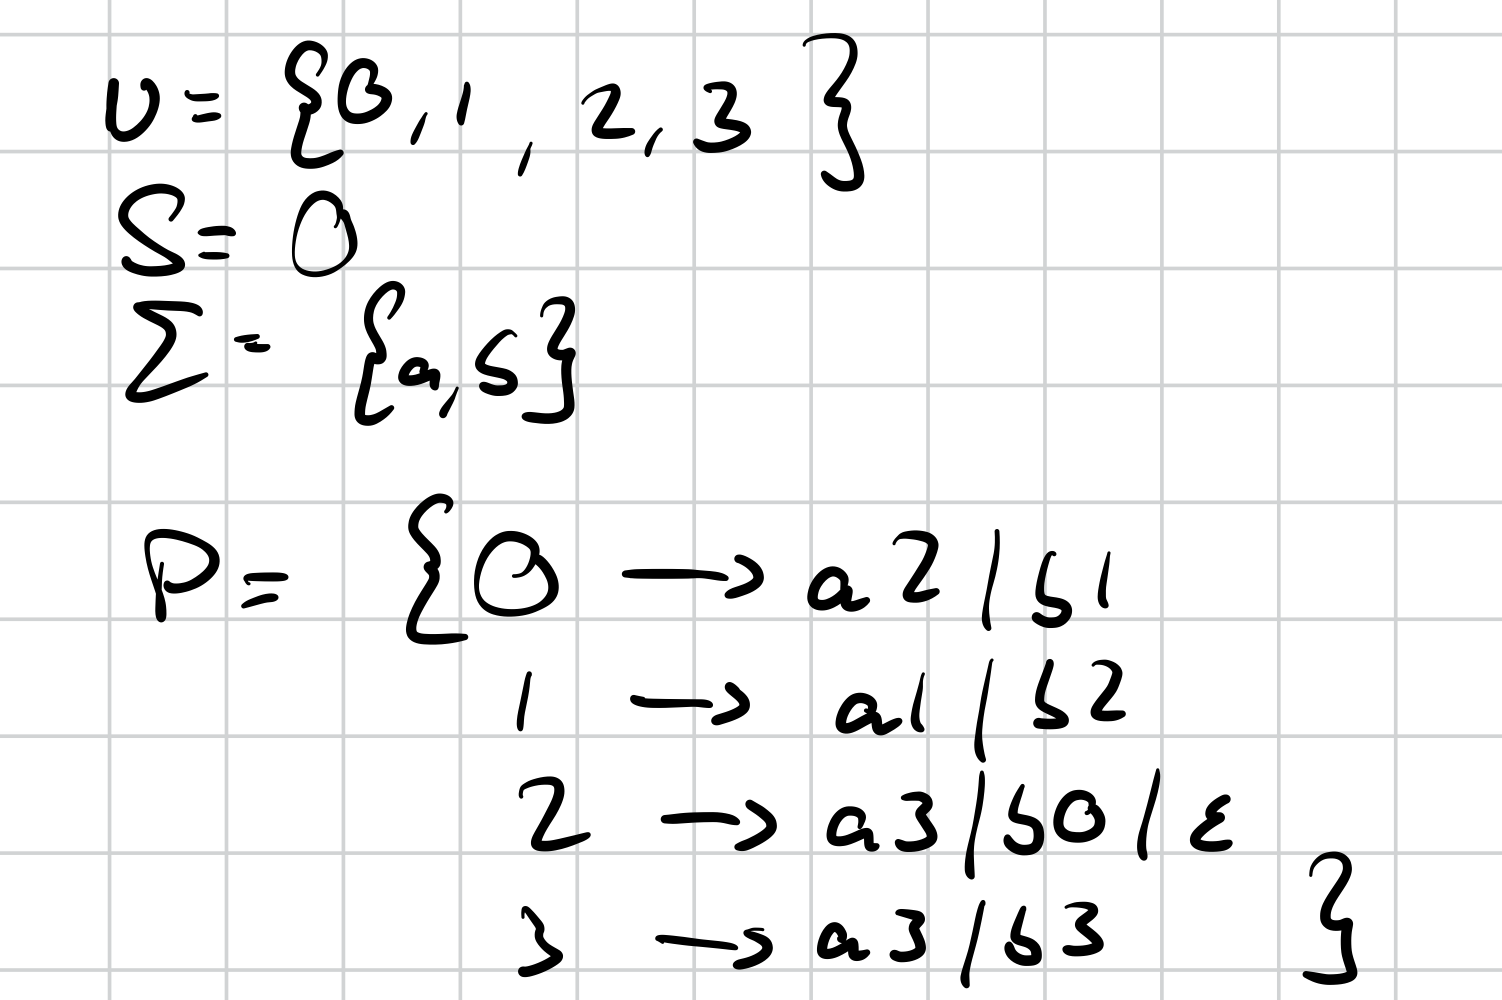 U = {0, 1, 2, 3}
S = 0
Σ = {a, b}
P = {0 → a2 | b1
1 → a1 | b2
2 → a3 | b0 | ε
3 → a3 | b3 }